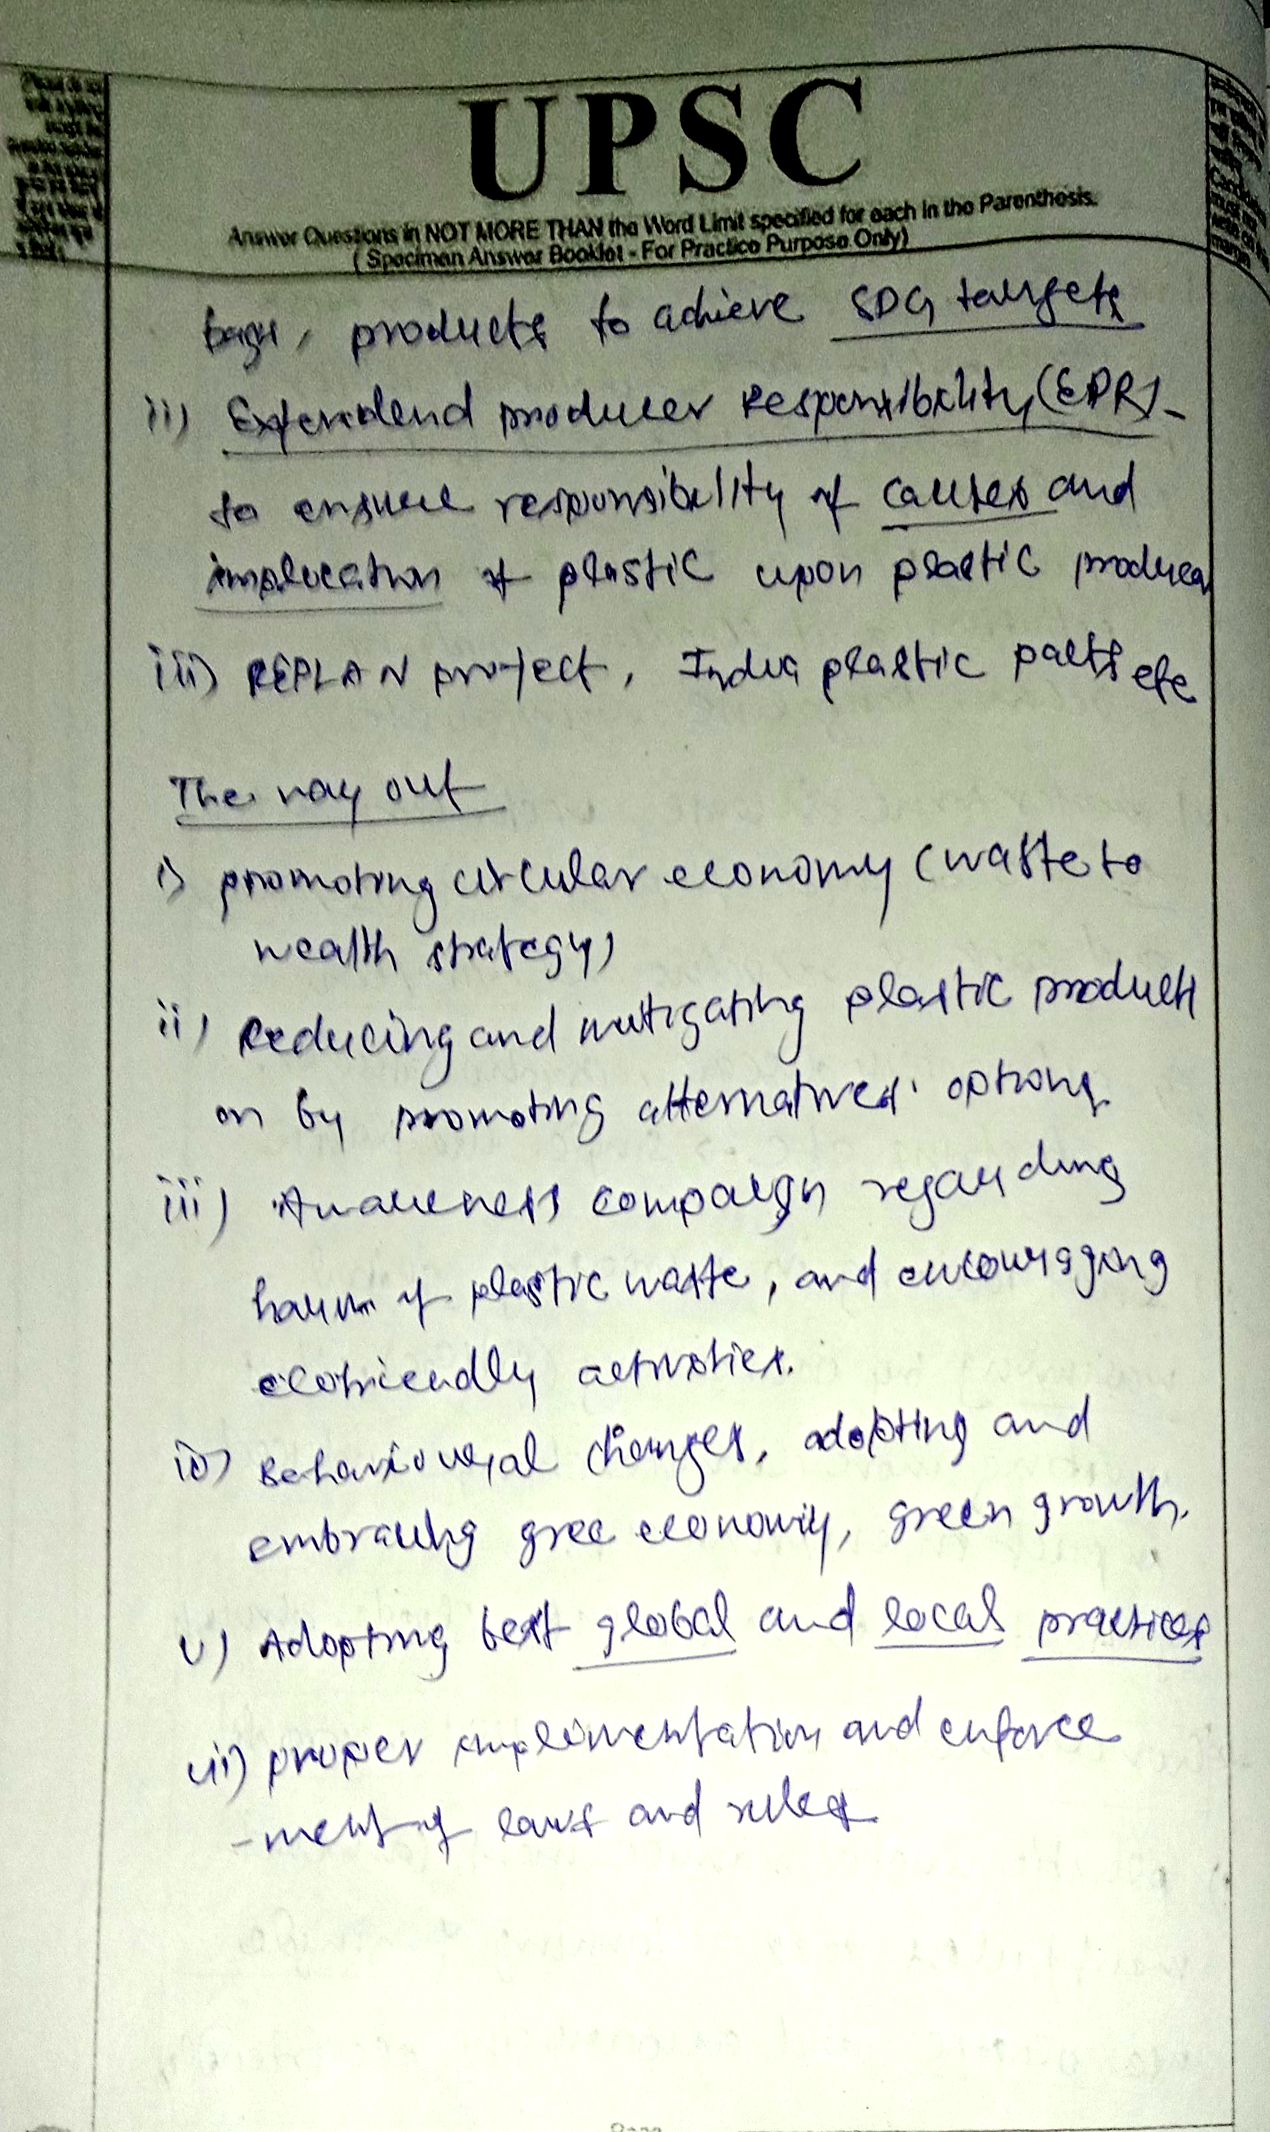 UPSC
Answer Questions in NOT MORE THAN the Word Limit specified for each in the Parenthesis.
( Specimen Answer Booklet - For Practice Purpose Only)
bags, products to achieve SDG targets
ii) Extendend producer Responsibility (EPR) -
to ensure responsibility of causes and
implication of plastic upon plastic producer
iii) REPLAN project, India plastic pacts etc
The way out
i) promoting circular economy (waste to
wealth strategy)
ii) Reducing and mitigating plastic products
on by promoting alternatives options
iii) Awareness compaign regarding
harm of plastic waste, and encouraging
ecofriendly activities.
iv) Behavioural changes, adopting and
embracing gree economiy, green growth.
v) Adopting best global and local practices
vii) proper implimentation and enforce
-ment of laws and rules